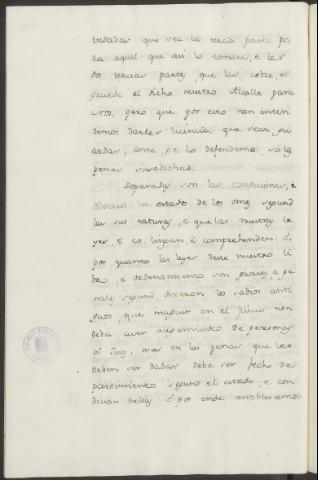 vedadas que sea la tercia parte pa
ra aquel que asi lo tomare, e las
dos tercias partes que las cobre, e
guarde el dicho nuestro Alcalle para
Nos, pero que por esto non enten
demos darles licencia, que sean ou
sadas; ante ge lo defendemos, so las
penas susodichas.
Departidas son las condiciones, e
diversos los estados de los omes segund
las sus naturas, e que las nuestras le
yes, e
por quanto las leyes deste nuestro li
bro, e ordenamiento son graves, e pe
nales segund dixeron los sabios anti
guos que maguer en el juicio non
deba aver alepamiento de personas
al Juez, mas en las penas que les
deben ser dadas debe ser fecho de
partimiento segund el estado, e con
dicion dellas. E por ende establecemos